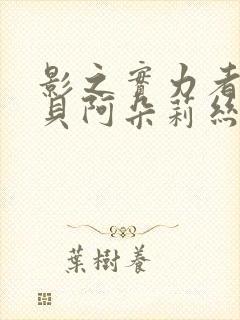 影之實力者
貝阿朵莉絲
葉樹養